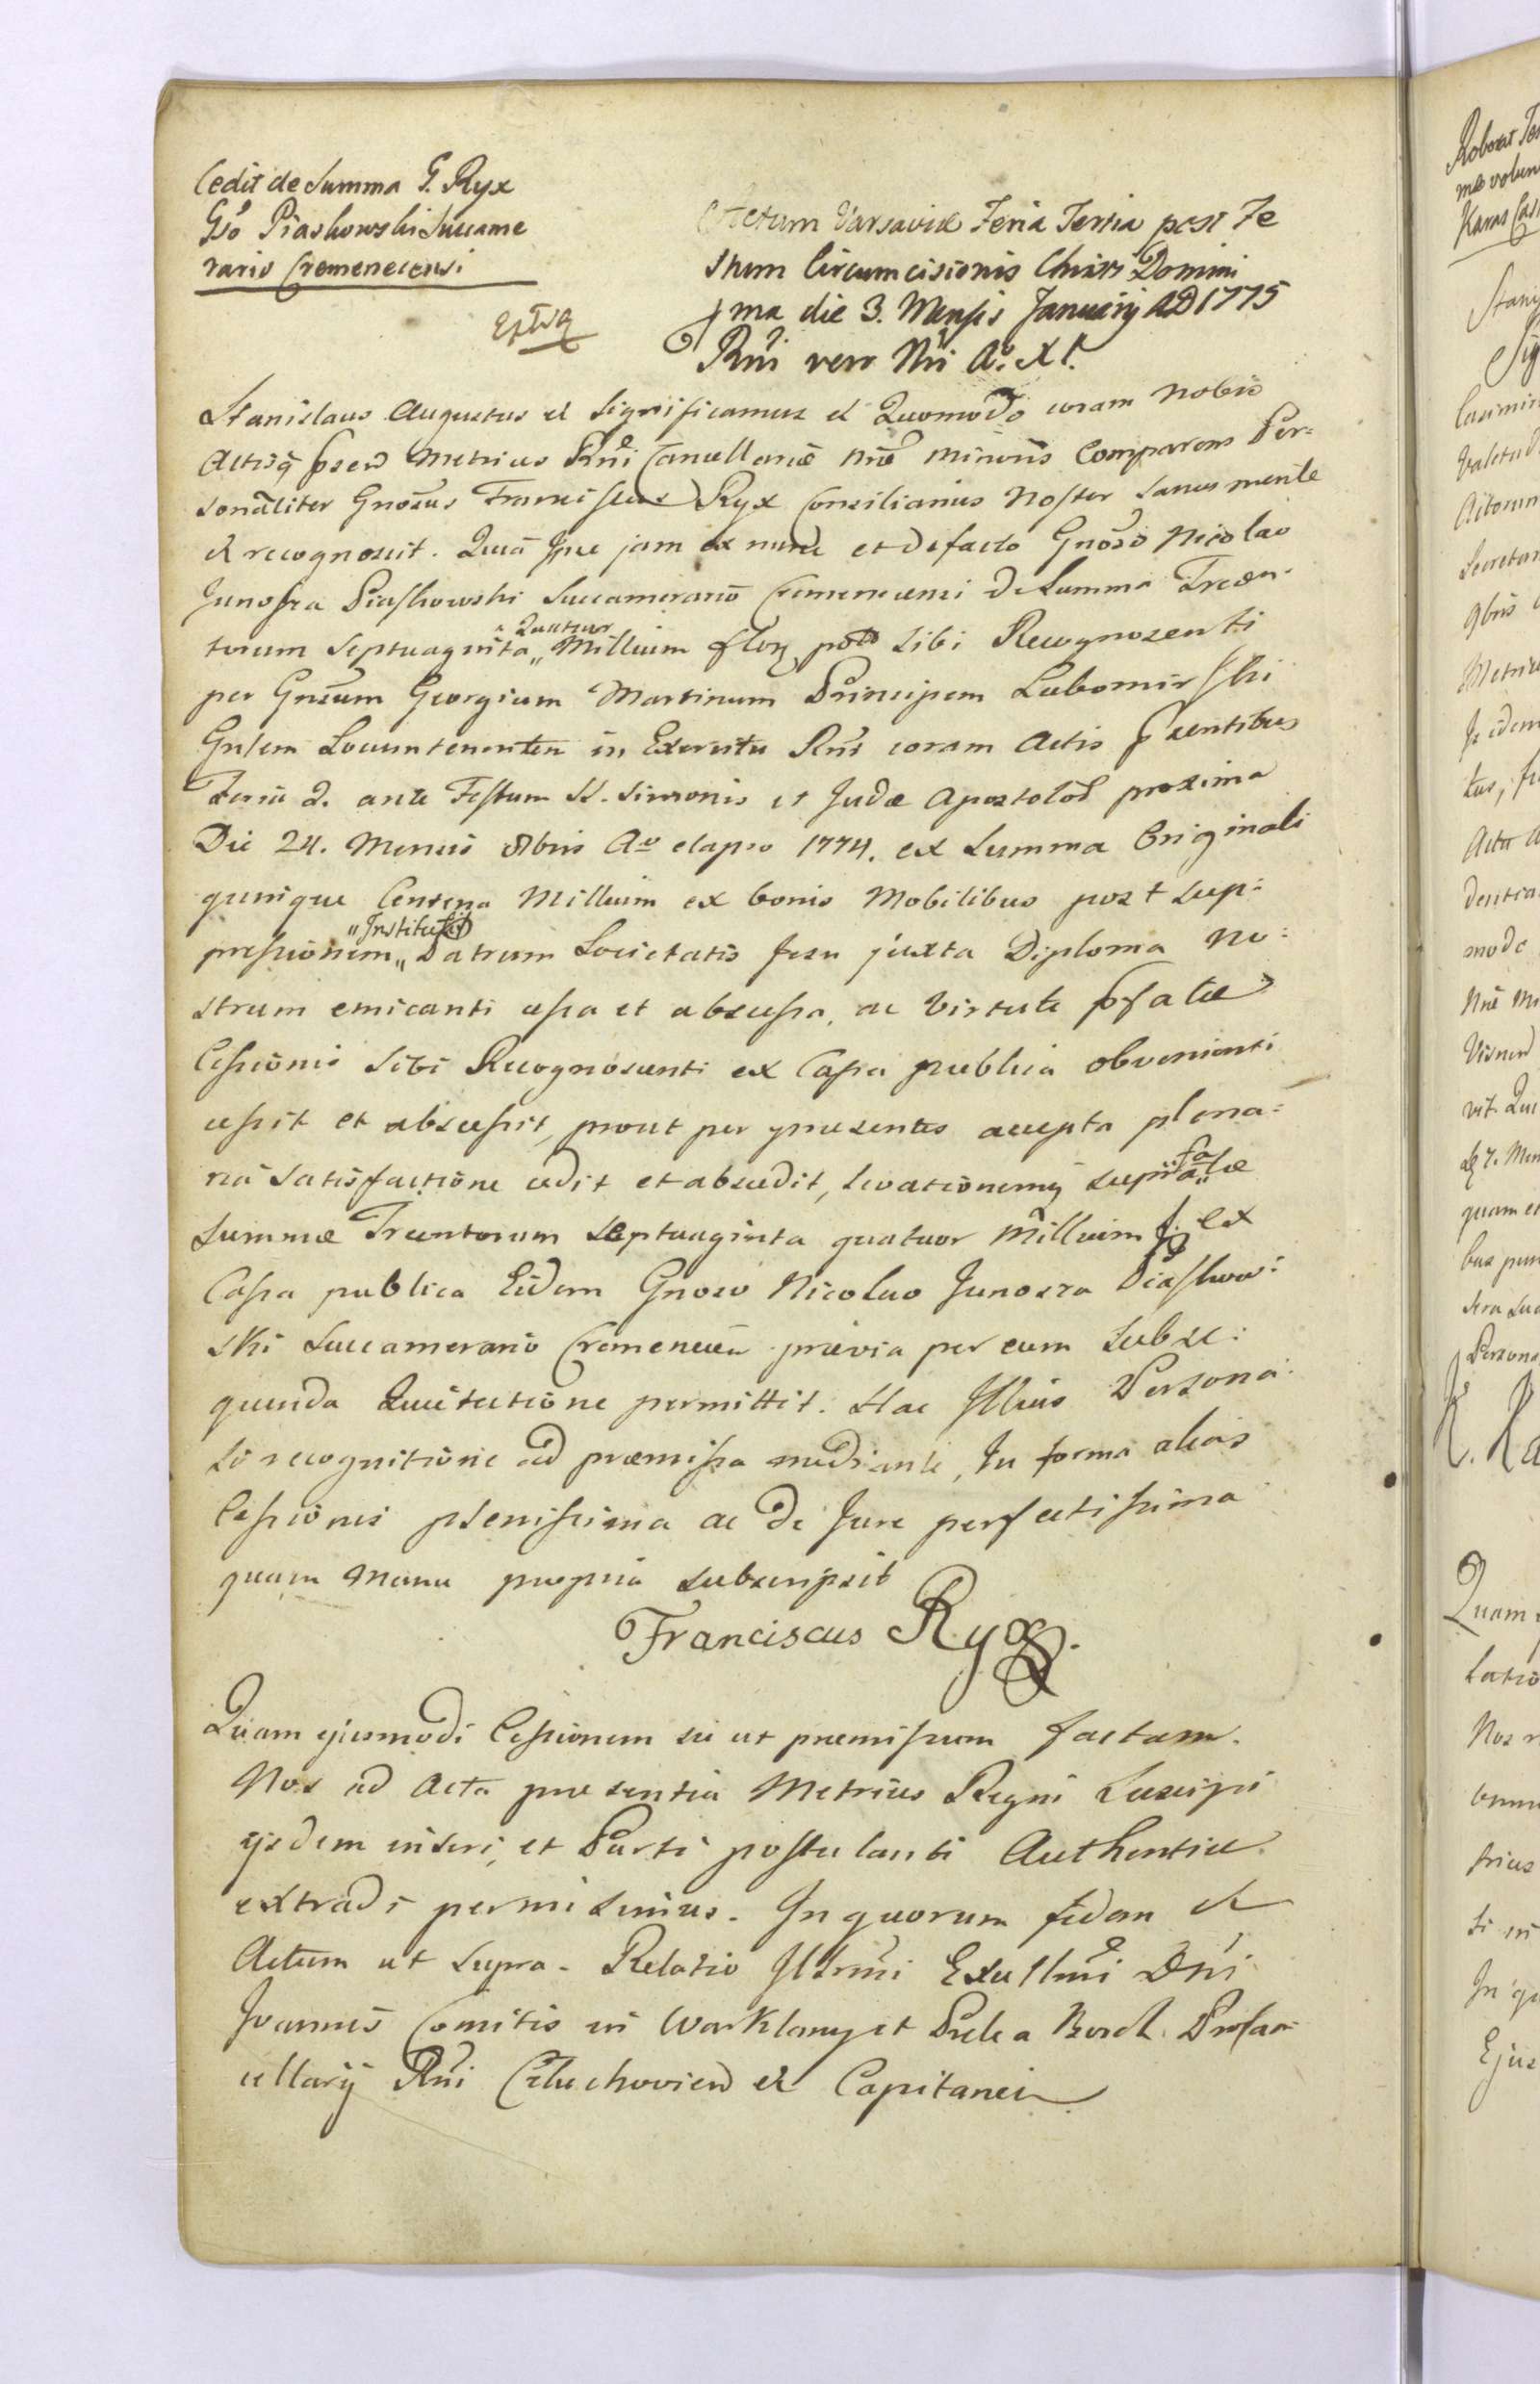 Cedit de Summa G. Ryx
Gso Piaskowski Succame
rario Cremenecensi
Extrq
Actum Varsaviæ Feria Tertia post Fe
stum Circumcisionis Christi Domini
xma die 3. Mensis Januarij AD 1775
Rni vero Nri Ao. XI.
Stanislaus Augustus et Significamus et Quomodo coram Nobis
Actisq prsen Metrices Rni Cancellariæ Nræ Minoris Comparens Per=
sonaliter Gnosus Franciscus Ryx Consiliarius Noster Sanus mente
et recognovit. Quia Ipse jam ex nunc et defacto Gnoso Nicolao
Junosza Piaskowski Succamerario Cremenecensi De Summa Trecen-
torum Septuaginta „ Quatuor Millium flor polo Sibi Recognoscenti
per Gnsum Georgium Martinum Principem Lubomirski
Gnlem Locumtenentem in Exercitu Rni coram Actis prsentibus
Feria 2. ante Festum SS. Simonis et Judæ Apostolor proxima
Die 24. Mensis 8bris Ao elapso 1774. ex Summa Originali
quinque Centena Millium ex bonis Mobilibus post Sup=
pressionem „ Instituti Patrum Societatis Jesu juxta Diploma No=
strum emicanti cessa et abscessa, ac Virtute prfatæ
Cessionis Sibi Recognoscenti ex Cassa publica obvenienti
cessit et abscessit, prout per præsentes accepta plena=
ria Satisfactione cedit et abscedit, Levationemq supra „ fa tæ
Summæ Trecentorum Septuaginta quatuor Millium f. ex
Cassa publica Eidem Gnoso Nicolao Junosza Piaskow=
ski Succamerario Cremenecen prævia per eum Subse=
quenda Quietatione permittit. Hac Illius Persona=
li recognitione ad præmissa mediante, In forma alias
Cessionis plenissima ac de Jure perfectissima
quam Manu propria subscripsit
Franciscus Ryx.
Quam ejusmodi Cessionem sic ut præmissum factam.
Nos ad Acta præsentia Metrices Regni Suscipi
ijsdem inseri, et Parti postulanti Authentice
extradi permisimus. In quorum fidem et
Actum ut Supra. Relatio Illrmi Excellmi Dni
Joannis Comitis in Warklany et Prela Borch Procan
cellarij Rni Człuchovien et Capitanei